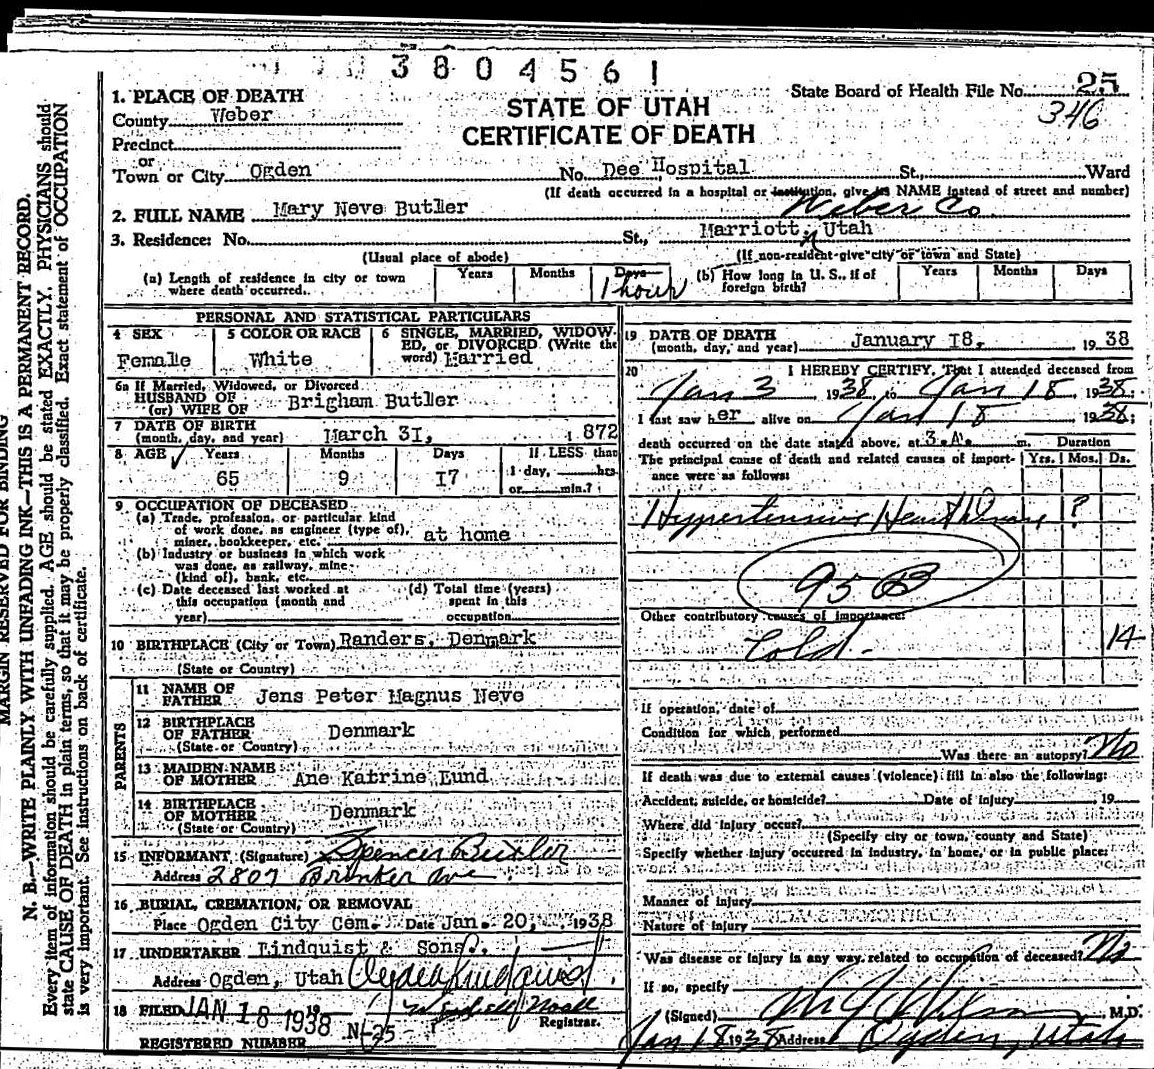 3804561
State Board of Health File No. 25
346
STATE OF UTAH
CERTIFICATE OF DEATH
1. PLACE OF DEATH
County Weber
Precinct
or
Town or City Ogden No. Dee Hospital St., Ward
(If death occurred in a hospital or institution, give its NAME instead of street and number)
2. FULL NAME Mary Neve Butler
Weber Co.
3. Residence: No. St., Marriott, Utah
(Usual place of abode) (If non-resident give city or town and State)
(a) Length of residence in city or town where death occurred. Years Months Days 1 hour
(b) How long in U. S., if of foreign birth? Years Months Days
PERSONAL AND STATISTICAL PARTICULARS
4 SEX Female
5 COLOR OR RACE White
6 SINGLE, MARRIED, WIDOWED, or DIVORCED (Write the word) Married
6a If Married, Widowed, or Divorced
HUSBAND OF
(or) WIFE OF Brigham Butler
7 DATE OF BIRTH
(month, day, and year) March 31, 1872
8 AGE Years Months Days If LESS than
65 9 17 1 day, hrs.
or min.?
9 OCCUPATION OF DECEASED
(a) Trade, profession, or particular kind
of work done, as engineer (type of),
miner, bookkeeper, etc. at home
(b) Industry or business in which work
was done, as railway, mine
(kind of), bank, etc.
(c) Date deceased last worked at
this occupation (month and
year)
(d) Total time (years)
spent in this
occupation
10 BIRTHPLACE (City or Town) Randers, Denmark
(State or Country)
PARENTS
11 NAME OF
FATHER Jens Peter Magnus Neve
12 BIRTHPLACE
OF FATHER Denmark
(State or Country)
13 MAIDEN NAME
OF MOTHER Ane Katrine Lund
14 BIRTHPLACE
OF MOTHER Denmark
(State or Country)
15 INFORMANT (Signature) Spencer Butler
Address 2807 Brinker Ave.
16 BURIAL, CREMATION, OR REMOVAL
Place Ogden City Cem. Date Jan. 20, 1938
17 UNDERTAKER Lindquist & Sons.
Address Ogden, Utah
18 FILED JAN 18 1938 19
Registrar.
REGISTERED NUMBER
19 DATE OF DEATH
(month, day, and year) January 18, 1938
20 I HEREBY CERTIFY, That I attended deceased from
Jan 3 1938, to Jan 18 1938.
I last saw her alive on Jan 18 1938;
death occurred on the date stated above, at 3.A. m.
The principal cause of death and related causes of importance were as follows:
Duration
Yrs. Mos. Ds.
Hypertensive Heart ?
95 B
Other contributory causes of importance:
Cold - 14
If operation, date of
Condition for which performed
Was there an autopsy? No
If death was due to external causes (violence) fill in also the following:
Accident, suicide, or homicide? Date of injury 19
Where did injury occur?
(Specify city or town, county and State)
Specify whether injury occurred in industry, in home, or in public place:
Manner of injury
Nature of injury
Was disease or injury in any way related to occupation of deceased? No
If so, specify
(Signed) , M.D.
Jan 18 1938 Address Ogden, Utah
MARGIN RESERVED FOR BINDING
N. B.—WRITE PLAINLY WITH UNFADING INK—THIS IS A PERMANENT RECORD.
Every item of information should be carefully supplied. AGE should be stated EXACTLY. PHYSICIANS should
state CAUSE OF DEATH in plain terms, so that it may be properly classified. Exact statement of OCCUPATION
is very important. See instructions on back of certificate.